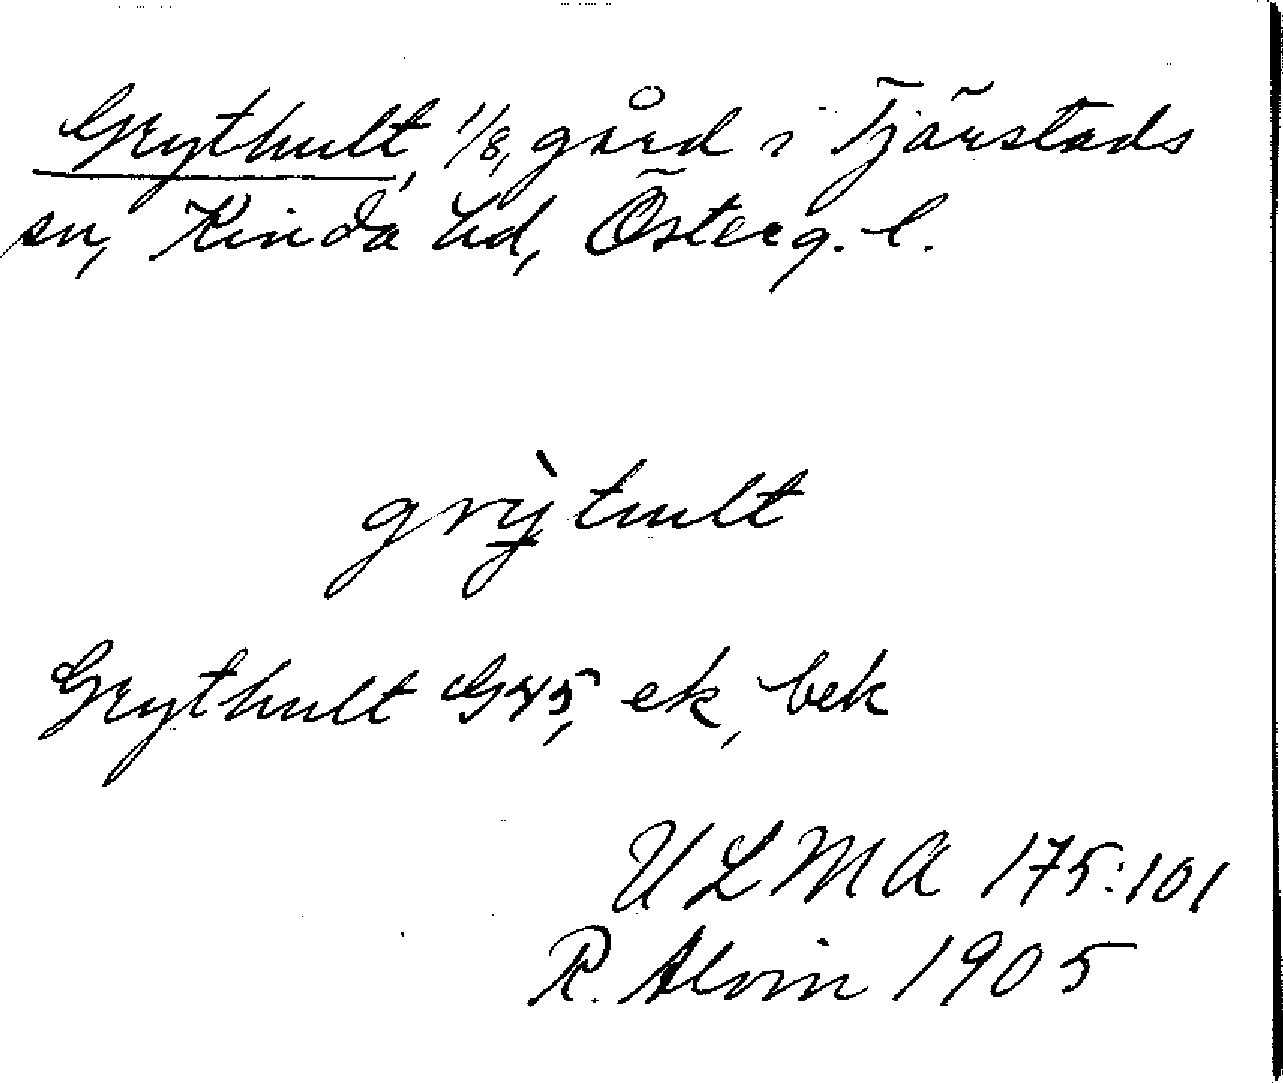 Grythult, 1/8, gård i Tjärstads
sn, Kinda hd, Österg. l.
grỳtult
Grythult G45, ek, bek
ULMA 175:101
R. Alvin 1905